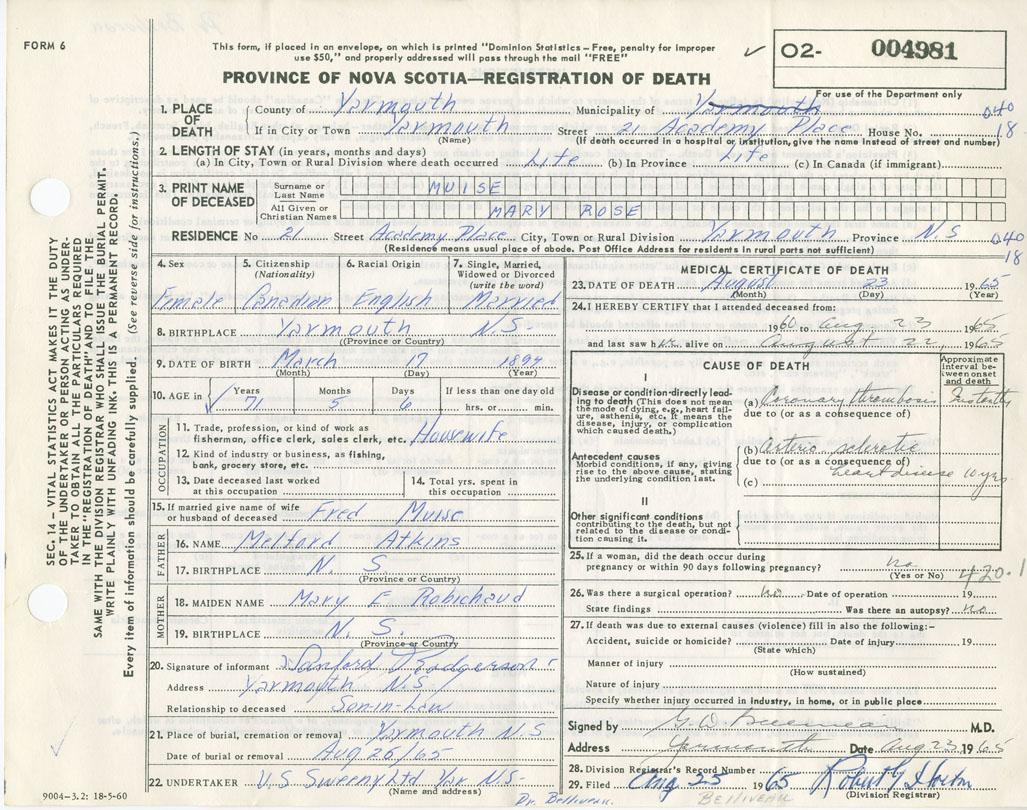 FORM 6
This form, if placed in an envelope, on which is printed "Dominion Statistics – Free, penalty for improper
use $50," and properly addressed will pass through the mail "FREE"
✓ O2- 004981
PROVINCE OF NOVA SCOTIA—REGISTRATION OF DEATH
For use of the Department only
1. PLACE OF DEATH
County of Yarmouth Municipality of Yarmouth 040
If in City or Town Yarmouth Street 21 Academy Place House No. 18
(Name) (If death occurred in a hospital or institution, give the name instead of street and number)
2. LENGTH OF STAY (in years, months and days)
(a) In City, Town or Rural Division where death occurred Life (b) In Province Life (c) In Canada (if immigrant)
3. PRINT NAME OF DECEASED
Surname or Last Name MUISE
All Given or Christian Names MARY ROSE
RESIDENCE No 21 Street Academy Place City, Town or Rural Division Yarmouth Province N.S 040
(Residence means usual place of abode. Post Office Address for residents in rural parts not sufficient) 18
4. Sex
Female
5. Citizenship
(Nationality)
Canadian
6. Racial Origin
English
7. Single, Married,
Widowed or Divorced
(write the word)
Married
8. BIRTHPLACE Yarmouth N.S-
(Province or Country)
9. DATE OF BIRTH March 17 1894
(Month) (Day) (Year)
10. AGE in ✓ Years 71 Months 5 Days 6 If less than one day old
hrs. or min.
OCCUPATION
11. Trade, profession, or kind of work as
fisherman, office clerk, sales clerk, etc. Housewife
12. Kind of industry or business, as fishing,
bank, grocery store, etc.
13. Date deceased last worked
at this occupation
14. Total yrs. spent in
this occupation
15. If married give name of wife
or husband of deceased Fred Muise
FATHER
16. NAME Melford Atkins
17. BIRTHPLACE N. S
(Province or Country)
MOTHER
18. MAIDEN NAME Mary E Robichaud
19. BIRTHPLACE N. S.
(Province or Country)
20. Signature of informant
Address Yarmouth N.S-
Relationship to deceased Son-in-Law
21. Place of burial, cremation or removal Yarmouth N.S
Date of burial or removal Aug 26/65
22. UNDERTAKER U.S Sweeny Ltd Yar N.S-
(Name and address)
9004–3.2: 18-5-60
Dr. Belliveau.
MEDICAL CERTIFICATE OF DEATH
23. DATE OF DEATH August 23 1965
(Month) (Day) (Year)
24. I HEREBY CERTIFY that I attended deceased from:
1960 to Aug 23 1965
and last saw her alive on August 22, 1965
CAUSE OF DEATH
Approximate
interval be-
tween onset
and death
I
Disease or condition directly lead-
ing to death (This does not mean
the mode of dying, e.g., heart fail-
ure, asthenia, etc. It means the
disease, injury, or complication
which caused death.)
(a) Coronary thrombosis Instantly
due to (or as a consequence of)
Antecedent causes
Morbid conditions, if any, giving
rise to the above cause, stating
the underlying condition last.
(b) arterio sclerotic
due to (or as a consequence of)
heart disease 10 yrs
(c)
II
Other significant conditions
contributing to the death, but not
related to the disease or condi-
tion causing it.
25. If a woman, did the death occur during
pregnancy or within 90 days following pregnancy? no
(Yes or No) 420.1
26. Was there a surgical operation? no. Date of operation 19
State findings Was there an autopsy? no
27. If death was due to external causes (violence) fill in also the following:–
Accident, suicide or homicide? Date of injury 19
(State which)
Manner of injury
(How sustained)
Nature of injury
Specify whether injury occurred in industry, in home, or in public place
Signed by G. D. Belliveau M.D.
Address Yarmouth Date Aug 23 1965
28. Division Registrar's Record Number
29. Filed Aug 25 1965
BELLIVEAU (Division Registrar)
SEC. 14 – VITAL STATISTICS ACT MAKES IT THE DUTY
OF THE UNDERTAKER OR PERSON ACTING AS UNDER-
TAKER TO OBTAIN ALL THE PARTICULARS REQUIRED
IN THE "REGISTRATION OF DEATH" AND TO FILE THE
SAME WITH THE DIVISION REGISTRAR WHO SHALL ISSUE THE BURIAL PERMIT.
WRITE PLAINLY WITH UNFADING INK. THIS IS A PERMANENT RECORD.
Every item of information should be carefully supplied. (See reverse side for instructions.)